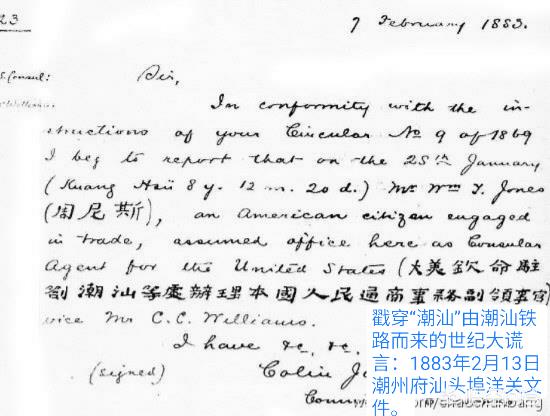 23
7 February 1883.
S. Consul:
Sir,
In conformity with the in-
structions of your Circular No 9 of 1869
I beg to report that on the 28th January
(Kuang Hsü 8 y. 12 m. 20 d.) Mr Wm Y. Jones
(周尼斯), an American citizen engaged
in trade, assumed office here as Consular
Agent for the United States (大美欽命駐
劄潮汕等處辦理本國人民通商事務副領事官)
vice Mr C. C. Williams.
I have &c. &c.
(signed) Colin
戳穿“潮汕”由潮汕铁
路而来的世纪大谎
言：1883年2月13日
潮州府汕头埠洋关文
件。